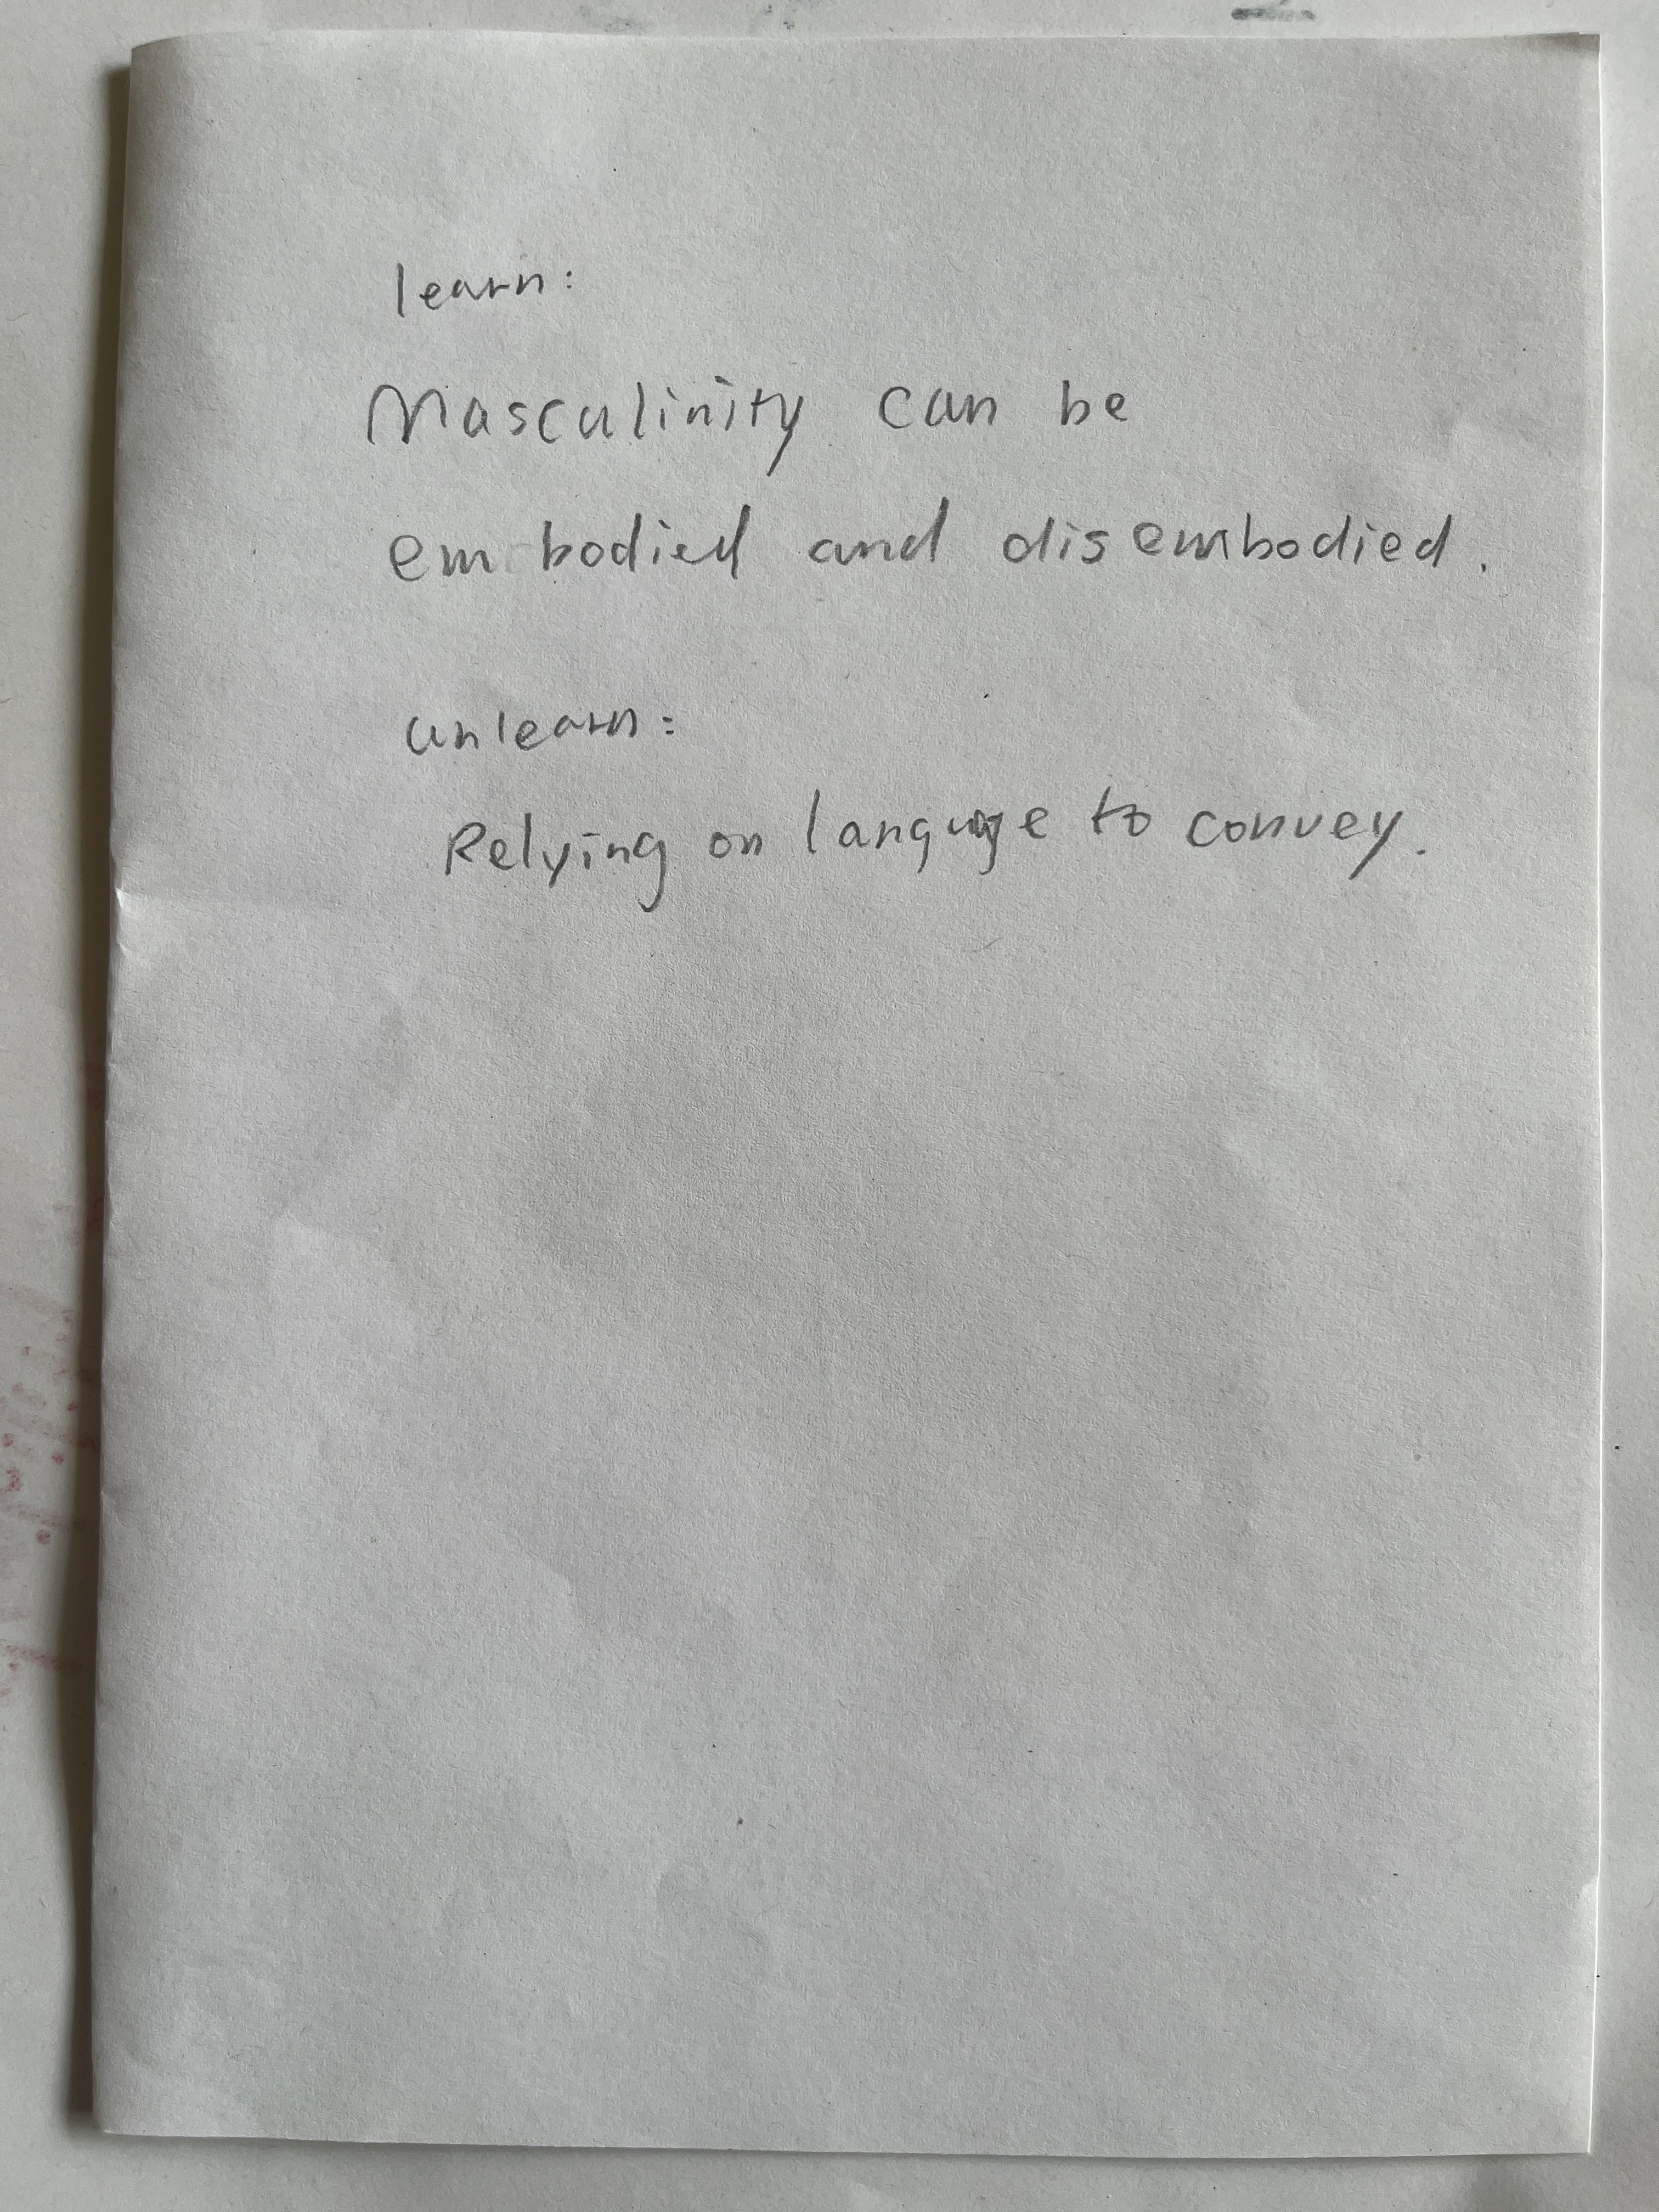 learn:
Masculinity can be
embodied and disembodied.
unlearn:
Relying on language to convey.